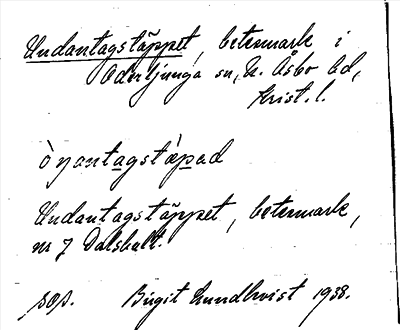 Undantagstäppet, betesmark i
Oderljunga sn, N. Åsbo hd,
Krist. l.
ònantagstæpad
Undantagstäppet, betesmark,
nr 7 Dalshult.
sos. Birgit Lundkvist 1938.